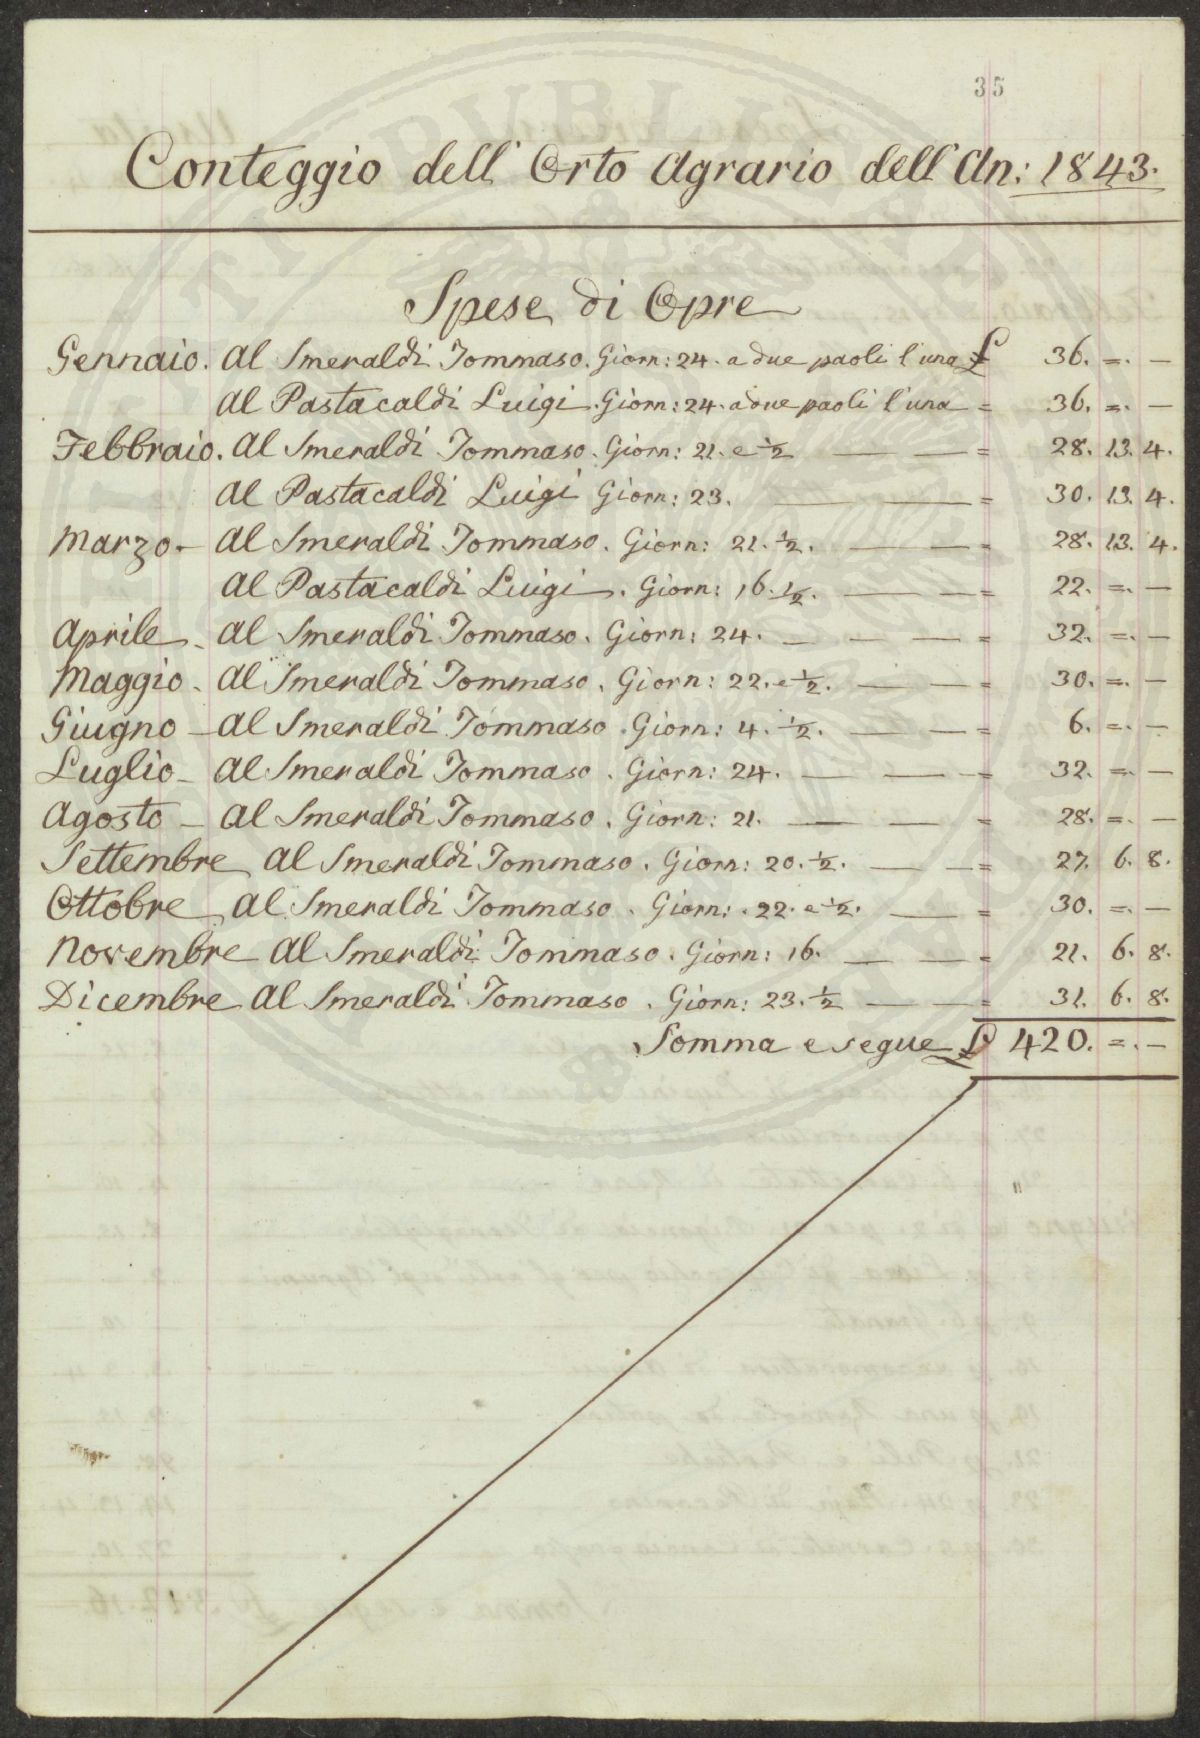 35
Conteggio dell' Orto Agrario dell' An: 1843.
Spese di Opre
Gennaio. Al Smeraldi Tommaso. Giorn: 24. a due paoli l'una £ 36. =. —
Al Pastacaldi Luigi. Giorn: 24. a due paoli l'una = 36. =. —
Febbraio. Al Smeraldi Tommaso. Giorn: 21. e ½ — — = 28. 13. 4.
Al Pastacaldi Luigi Giorn: 23. — — = 30. 13. 4.
Marzo. — Al Smeraldi Tommaso. Giorn: 21. ½. — — = 28. 13. 4.
Al Pastacaldi Luigi. Giorn: 16. ½. — — = 22. =. —
Aprile — Al Smeraldi Tommaso. Giorn: 24. — — — = 32. =. —
Maggio — Al Smeraldi Tommaso. Giorn: 22. e ½. — — = 30. =. —
Giugno — Al Smeraldi Tommaso. Giorn: 4. ½. — — = 6. =. —
Luglio — Al Smeraldi Tommaso. Giorn: 24. — — — = 32. =. —
Agosto — Al Smeraldi Tommaso. Giorn: 21. — — — = 28. =. —
Settembre Al Smeraldi Tommaso. Giorn: 20. ½. — — = 27. 6. 8.
Ottobre Al Smeraldi Tommaso. Giorn: 22. e ½. — = 30. =. —
Novembre Al Smeraldi Tommaso. Giorn: 16. — — = 21. 6. 8.
Dicembre Al Smeraldi Tommaso. Giorn: 23. ½ — — = 31. 6. 8.
Somma e segue £ 420. =. —